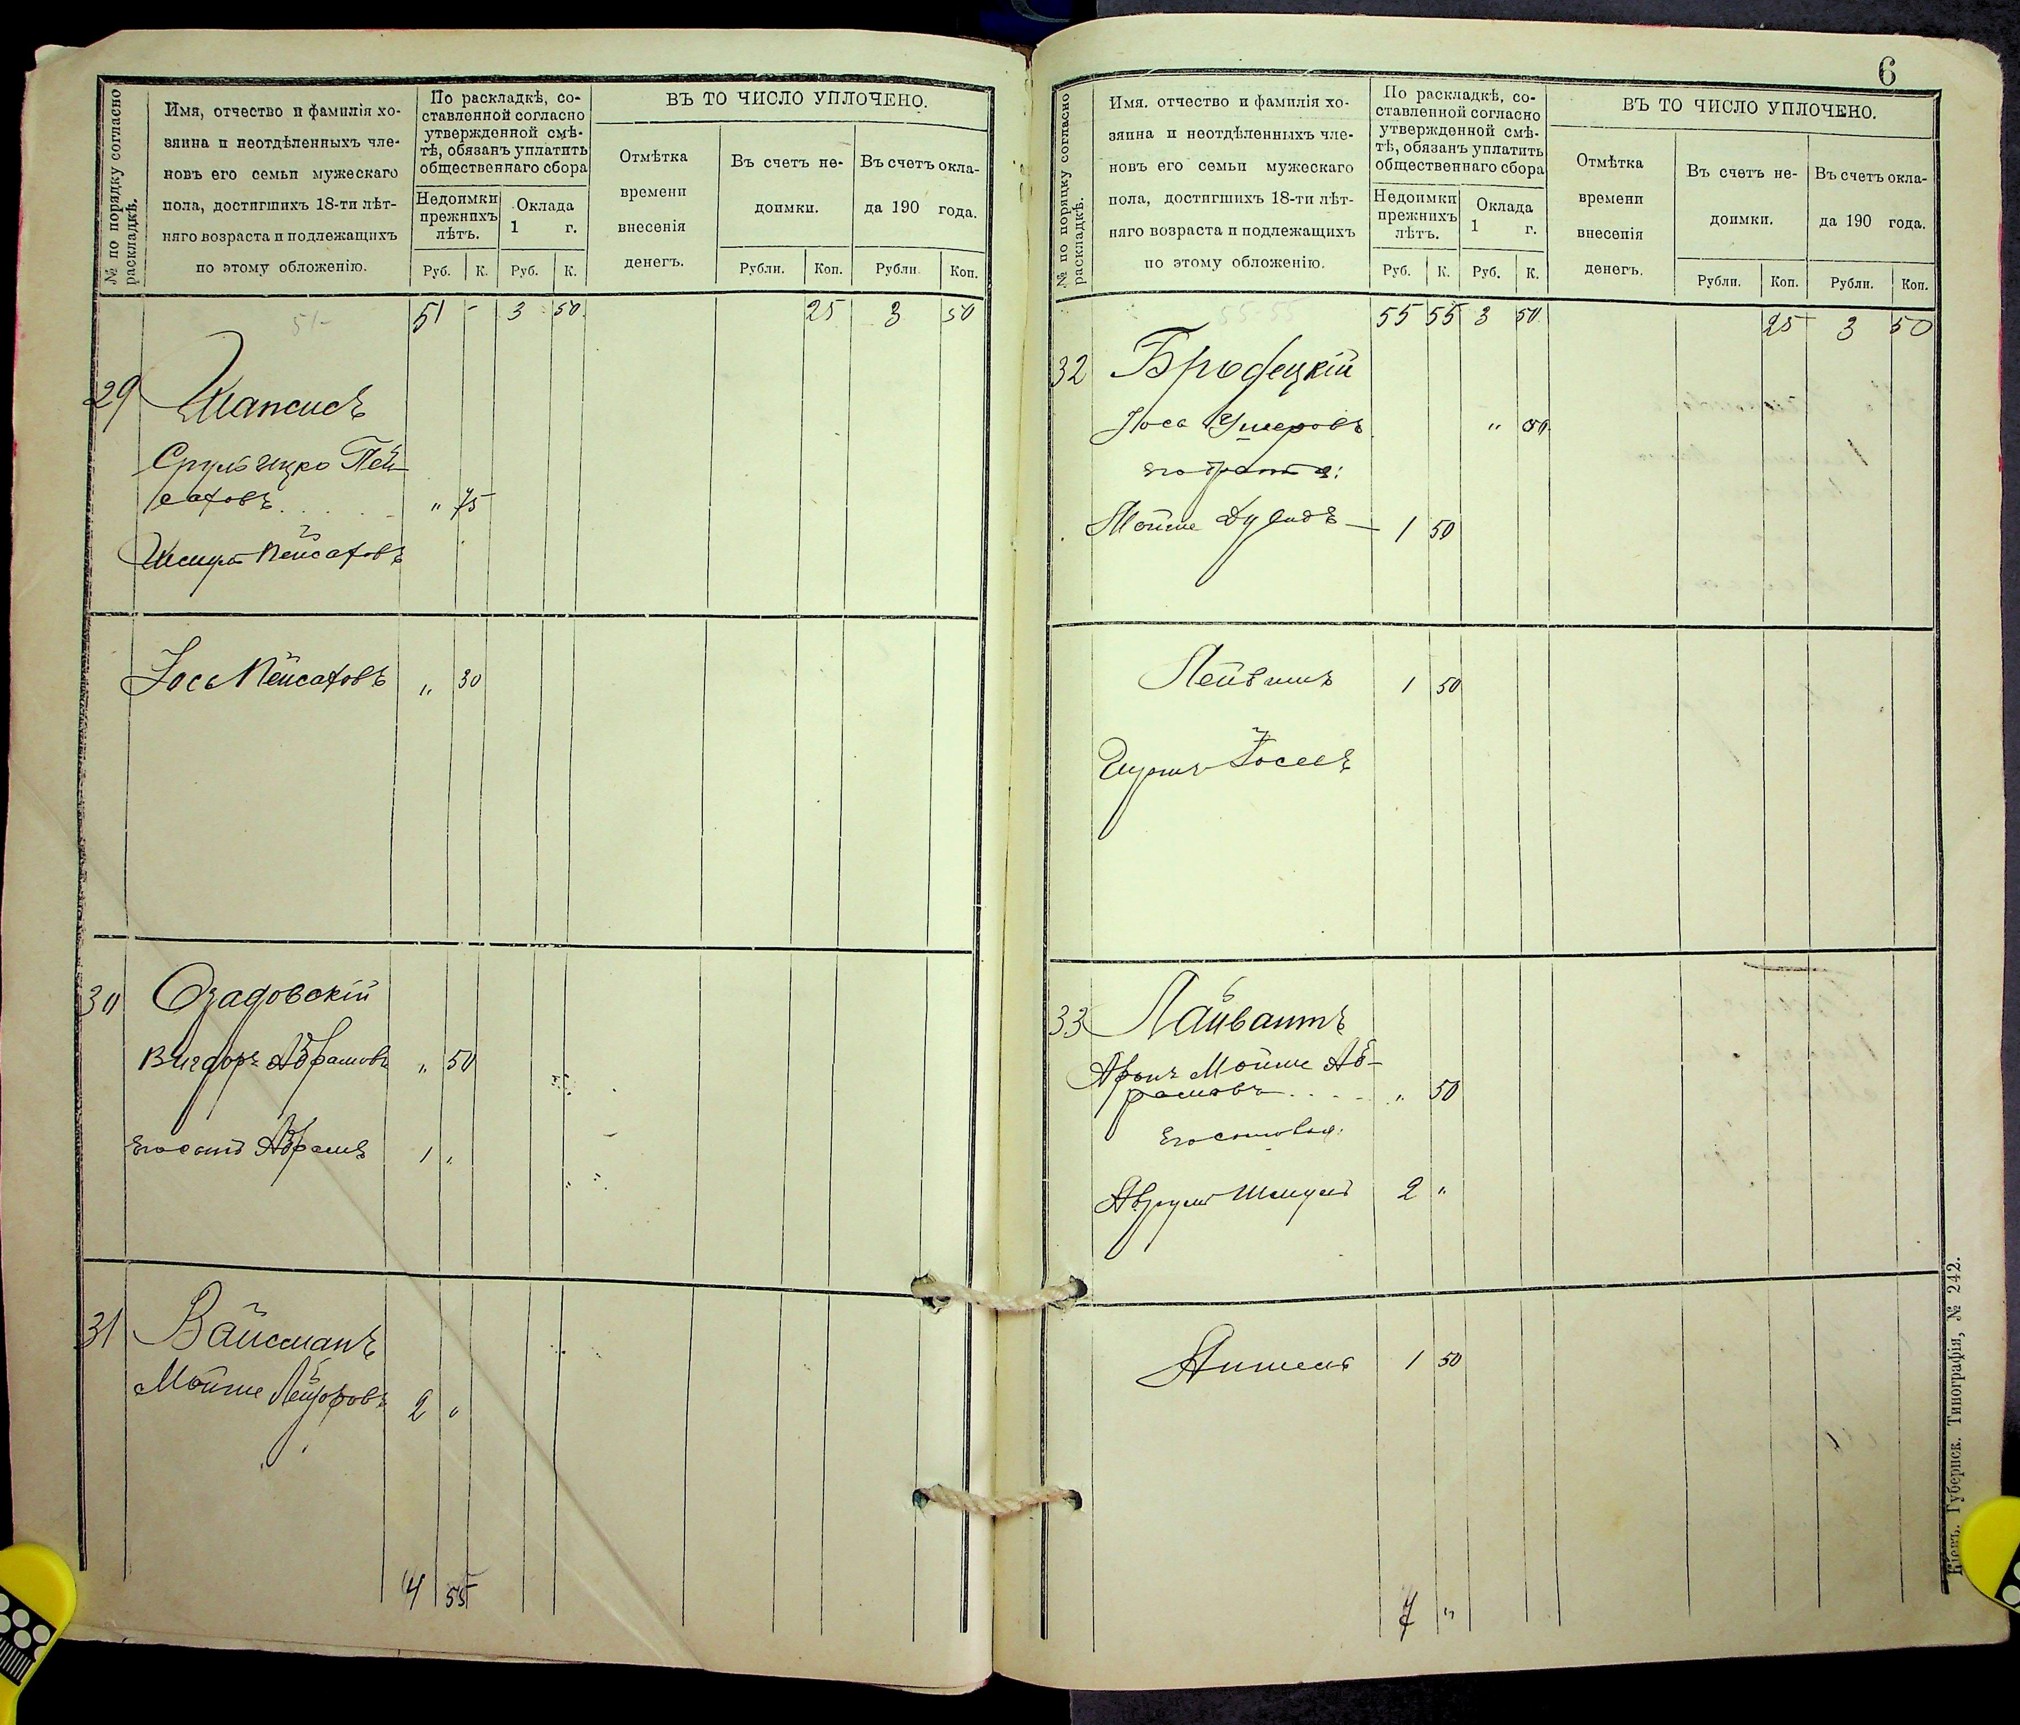 № по порядку согласно
раскладкѣ.
Имя, отчество и фамилія хо-
зяина и неотдѣленныхъ чле-
новъ его семьи мужескаго
пола, достигшихъ 18-ти лѣт-
няго возраста и подлежащихъ
по этому обложенію.
По раскладкѣ, со-
ставленной согласно
утвержденной смѣ-
тѣ, обязанъ уплатить
общественнаго сбора
Недоимки
прежнихъ
лѣтъ.
Оклада
1 г.
Руб. К. Руб. К.
ВЪ ТО ЧИСЛО УПЛОЧЕНО.
Отмѣтка
времени
внесенія
денегъ.
Въ счетъ не-
доимки.
Въ счетъ окла-
да 190 года.
Рубли. Коп. Рубли. Коп.
51- 51 - 3 50 25 3 50
29
Сруль Ицко Пей-
сахов . . . . " 75
Шмуль Пейсаховъ
Іось Пейсаховъ " 30
30 Озадовскій
Вигдоръ Абрамовъ " 50
Его сынъ Абрамъ 1 "
31 Вайсманъ
Мойше Лейзоровъ 2 "
4 55
6
№ по порядку согласно
раскладкѣ.
Имя, отчество и фамилія хо-
зяина и неотдѣленныхъ чле-
новъ его семьи мужескаго
пола, достигшихъ 18-ти лѣт-
няго возраста и подлежащихъ
по этому обложенію.
По раскладкѣ, со-
ставленной согласно
утвержденной смѣ-
тѣ, обязанъ уплатить
общественнаго сбора
Недоимки
прежнихъ
лѣтъ.
Оклада
1 г.
Руб. К. Руб. К.
ВЪ ТО ЧИСЛО УПЛОЧЕНО.
Отмѣтка
времени
внесенія
денегъ.
Въ счетъ не-
доимки.
Въ счетъ окла-
да 190 года.
Рубли. Коп. Рубли. Коп.
55-55 55 55 3 50 25 3 50
32 Бродецкій
Іось " 50
Его братья:
Мойше Дувидъ 1 50
Лейвишъ 1 50
Іосевъ
33 Лайвантъ
Аронъ Мойше Аб-
рамовъ . . . . " 50
Его сыновья:
Аврумъ Шмуль 2 "
Аншель 1 50
7 "
Кіевъ. Губернск. Типографія, № 242.